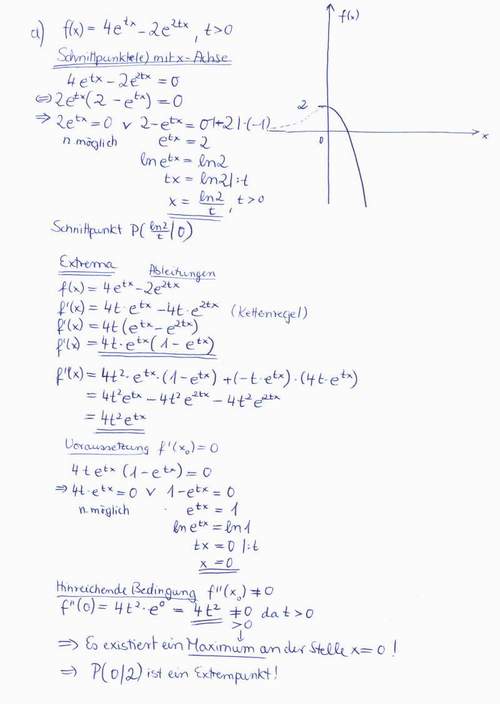 a) f(x) = 4e^tx − 2e^2tx , t>0
f(x)
Schnittpunkt(e) mit x-Achse
4e^tx − 2e^2tx = 0
⇔ 2e^tx (2 − e^tx) = 0
2
⇒ 2e^tx = 0 ∨ 2 − e^tx = 0 |+2 | ·(−1)
0
x
n. möglich e^tx = 2
ln e^tx = ln2
tx = ln2 |:t
x = ln2/t , t>0
Schnittpunkt P(ln2/t | 0)
Extrema Ableitungen
f(x) = 4e^tx − 2e^2tx
f'(x) = 4t·e^tx − 4t·e^2tx (Kettenregel)
f'(x) = 4t(e^tx − e^2tx)
f'(x) = 4t·e^tx (1 − e^tx)
f''(x) = 4t²·e^tx·(1 − e^tx) + (−t·e^tx)·(4t·e^tx)
= 4t²e^tx − 4t²e^2tx − 4t²e^2tx
= 4t²e^tx
Voraussetzung f'(x₀) = 0
4te^tx (1 − e^tx) = 0
⇒ 4t·e^tx = 0 ∨ 1 − e^tx = 0
n. möglich e^tx = 1
ln e^tx = ln1
tx = 0 |:t
x = 0
Hinreichende Bedingung f''(x₀) ≠ 0
f''(0) = 4t²·e⁰ = 4t² ≠ 0 da t>0
>0
↓
⇒ Es existiert ein Maximum an der Stelle x = 0 !
⇒ P(0/2) ist ein Extrempunkt!